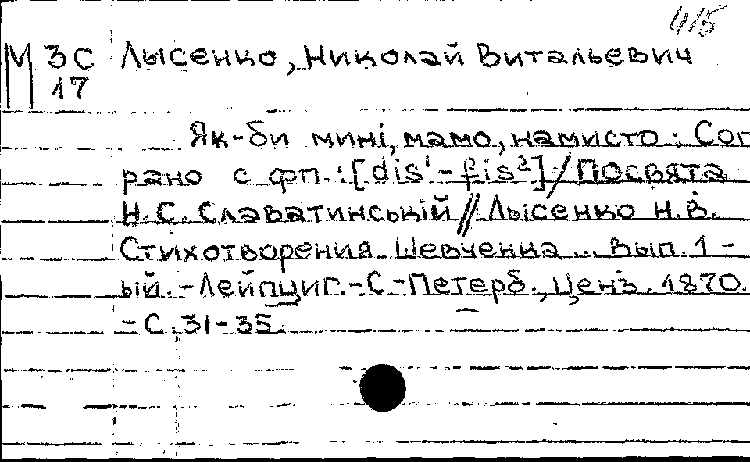 415
М 3С Лысенко, Николай Витальевич
17
Як-би мині, мамо, намисто : Соп
рано с фп. : [dis¹-fis²] / Посвята
Н.С. Славатинській // Лысенко Н.В.
Стихотворения Шевченка... Вып. 1-
ый. - Лейпциг. - С-Петерб., Ценз. 1870.
- С. 31-35.